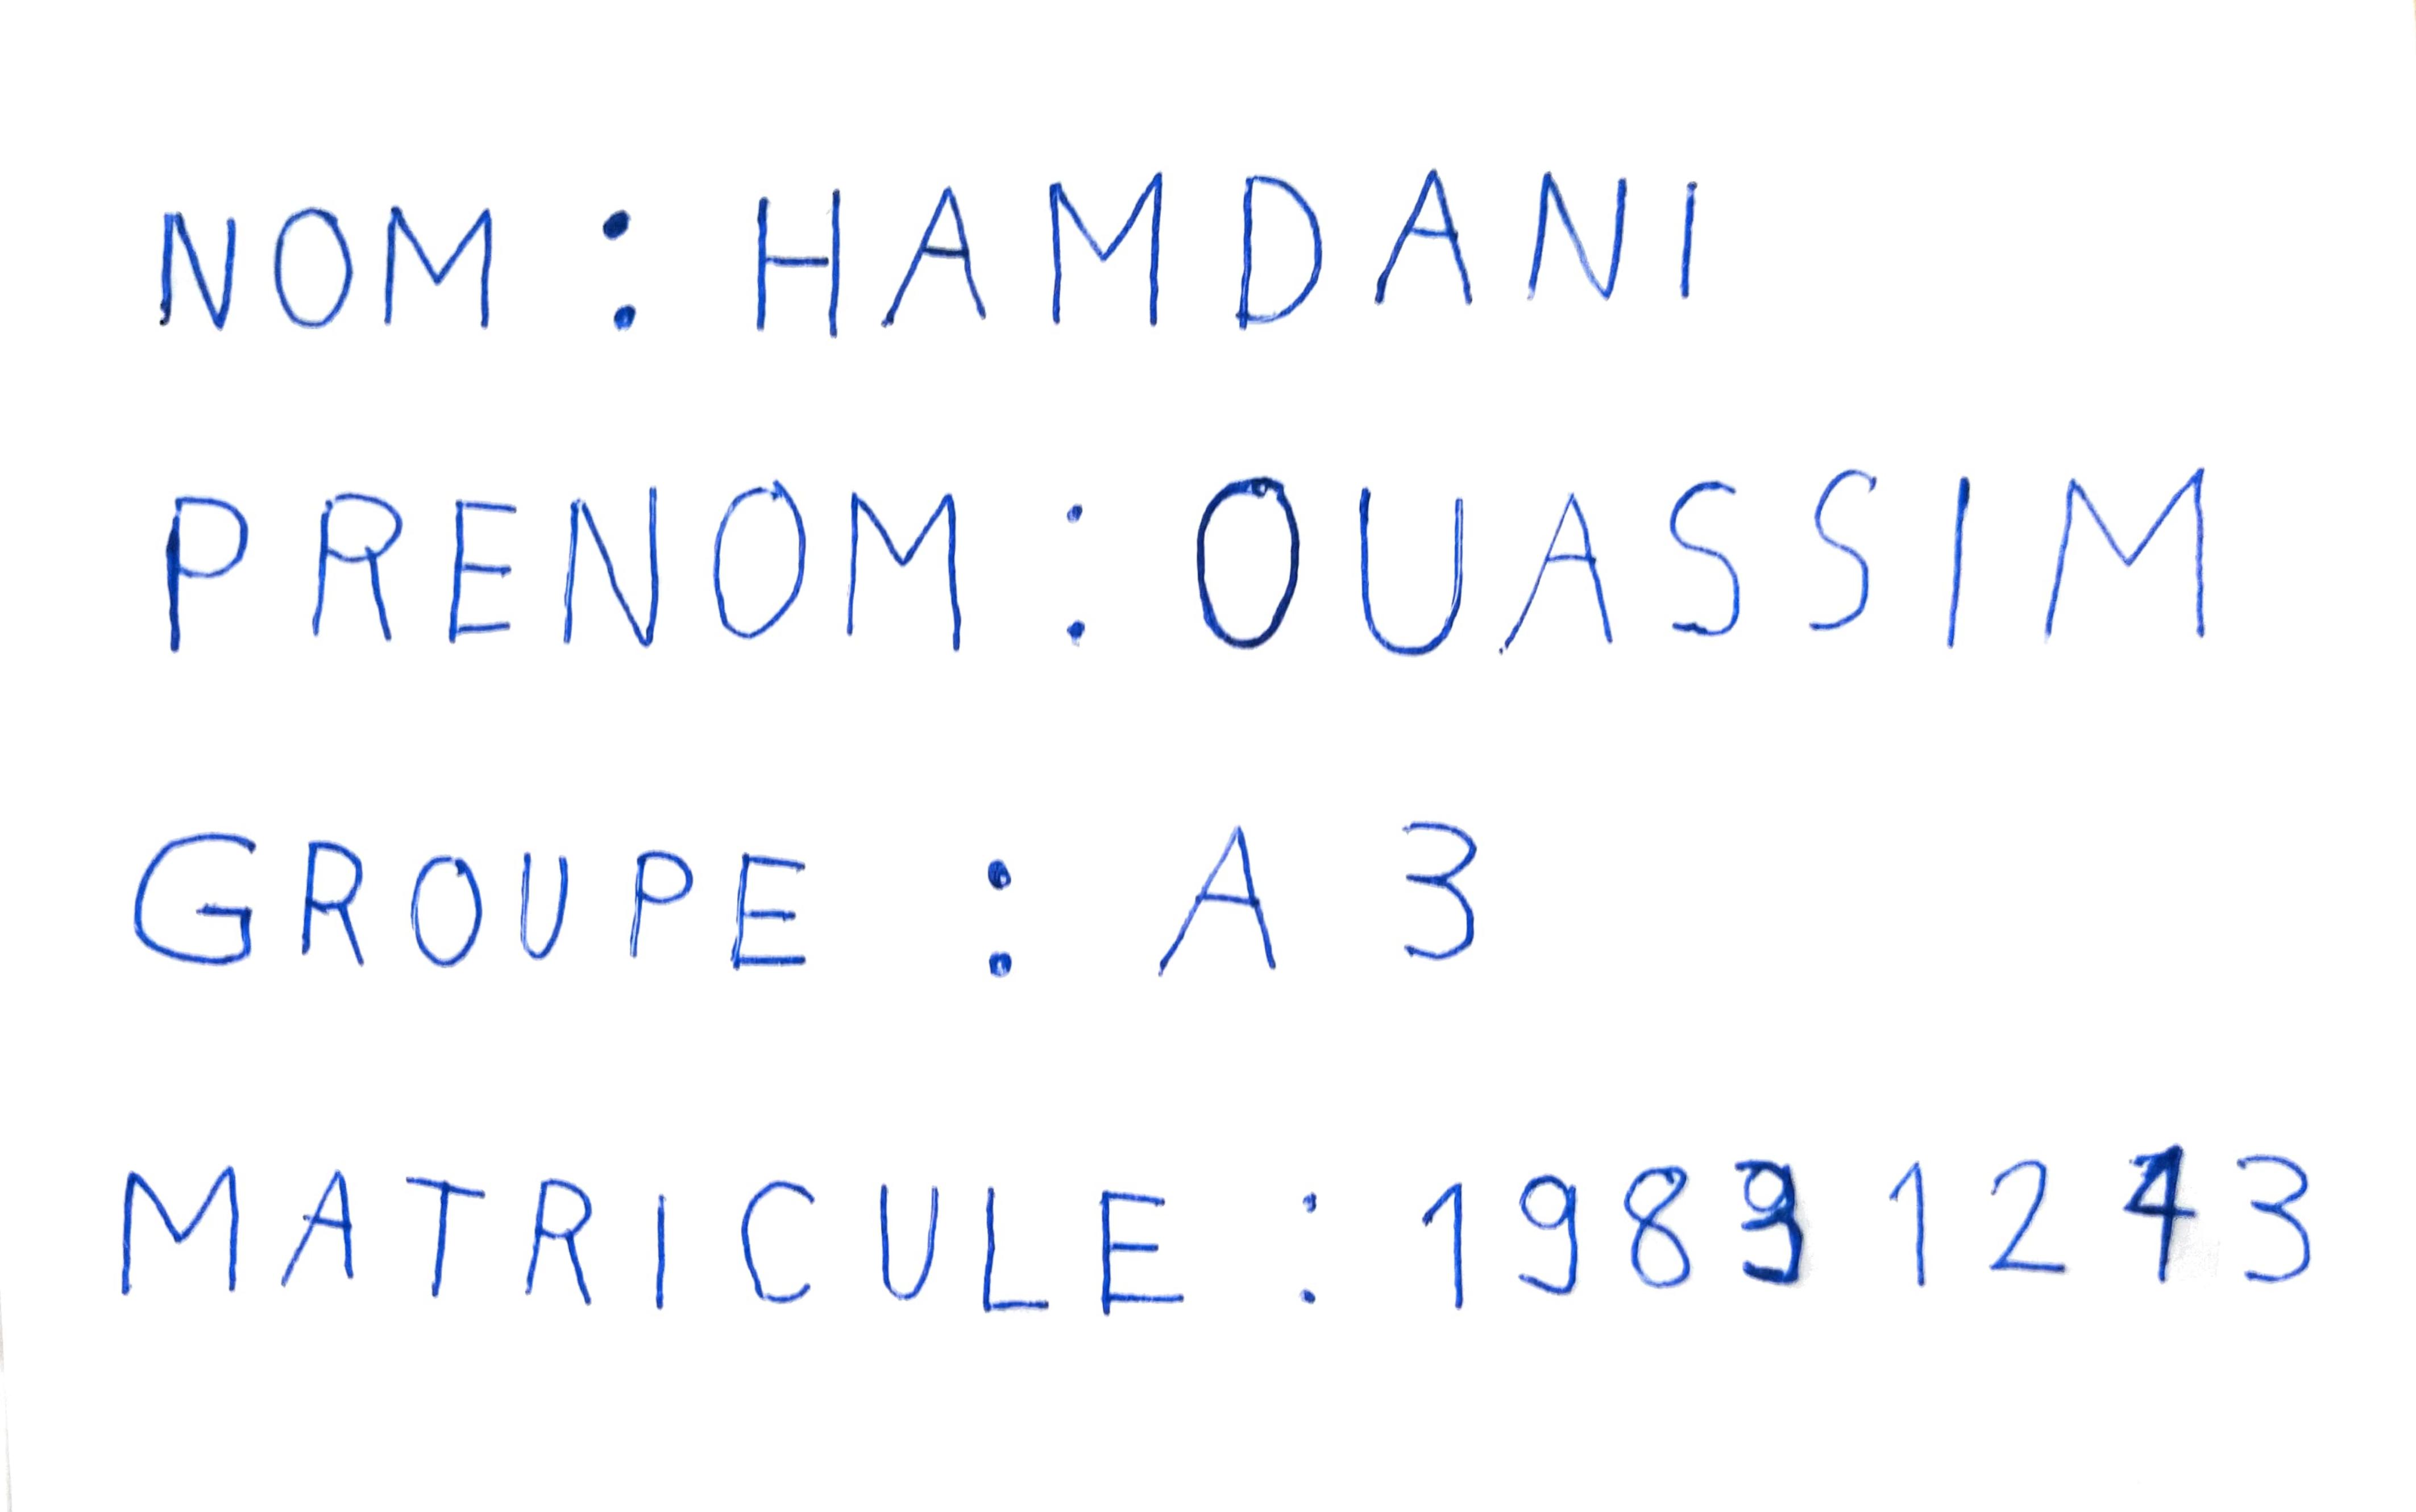 NOM : HAMDANI
PRENOM : OUASSIM
GROUPE : A 3
MATRICULE :